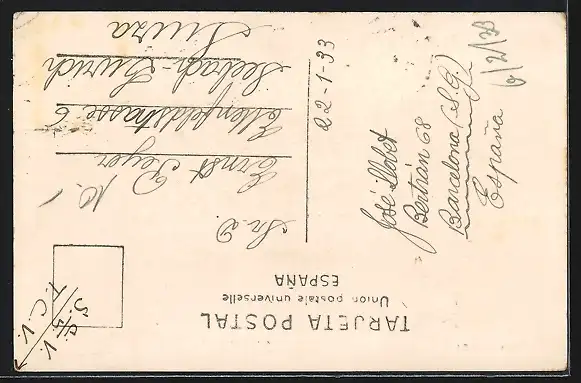 TARJETA POSTAL
Union postale universelle
ESPAÑA
S.S.V.
T.C.V.
Sr. D.
Ernst Peyer
Ettenfeldstrasse 6
Seebach-Zurich
Suiza
22-1-33
José Llobet
Bertrán 68
Barcelona (S.G.)
España
6/2/33